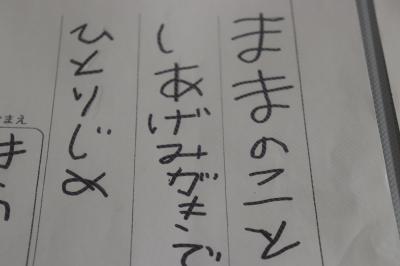 ままのこえ
しあげみがきで
ひとりじめ